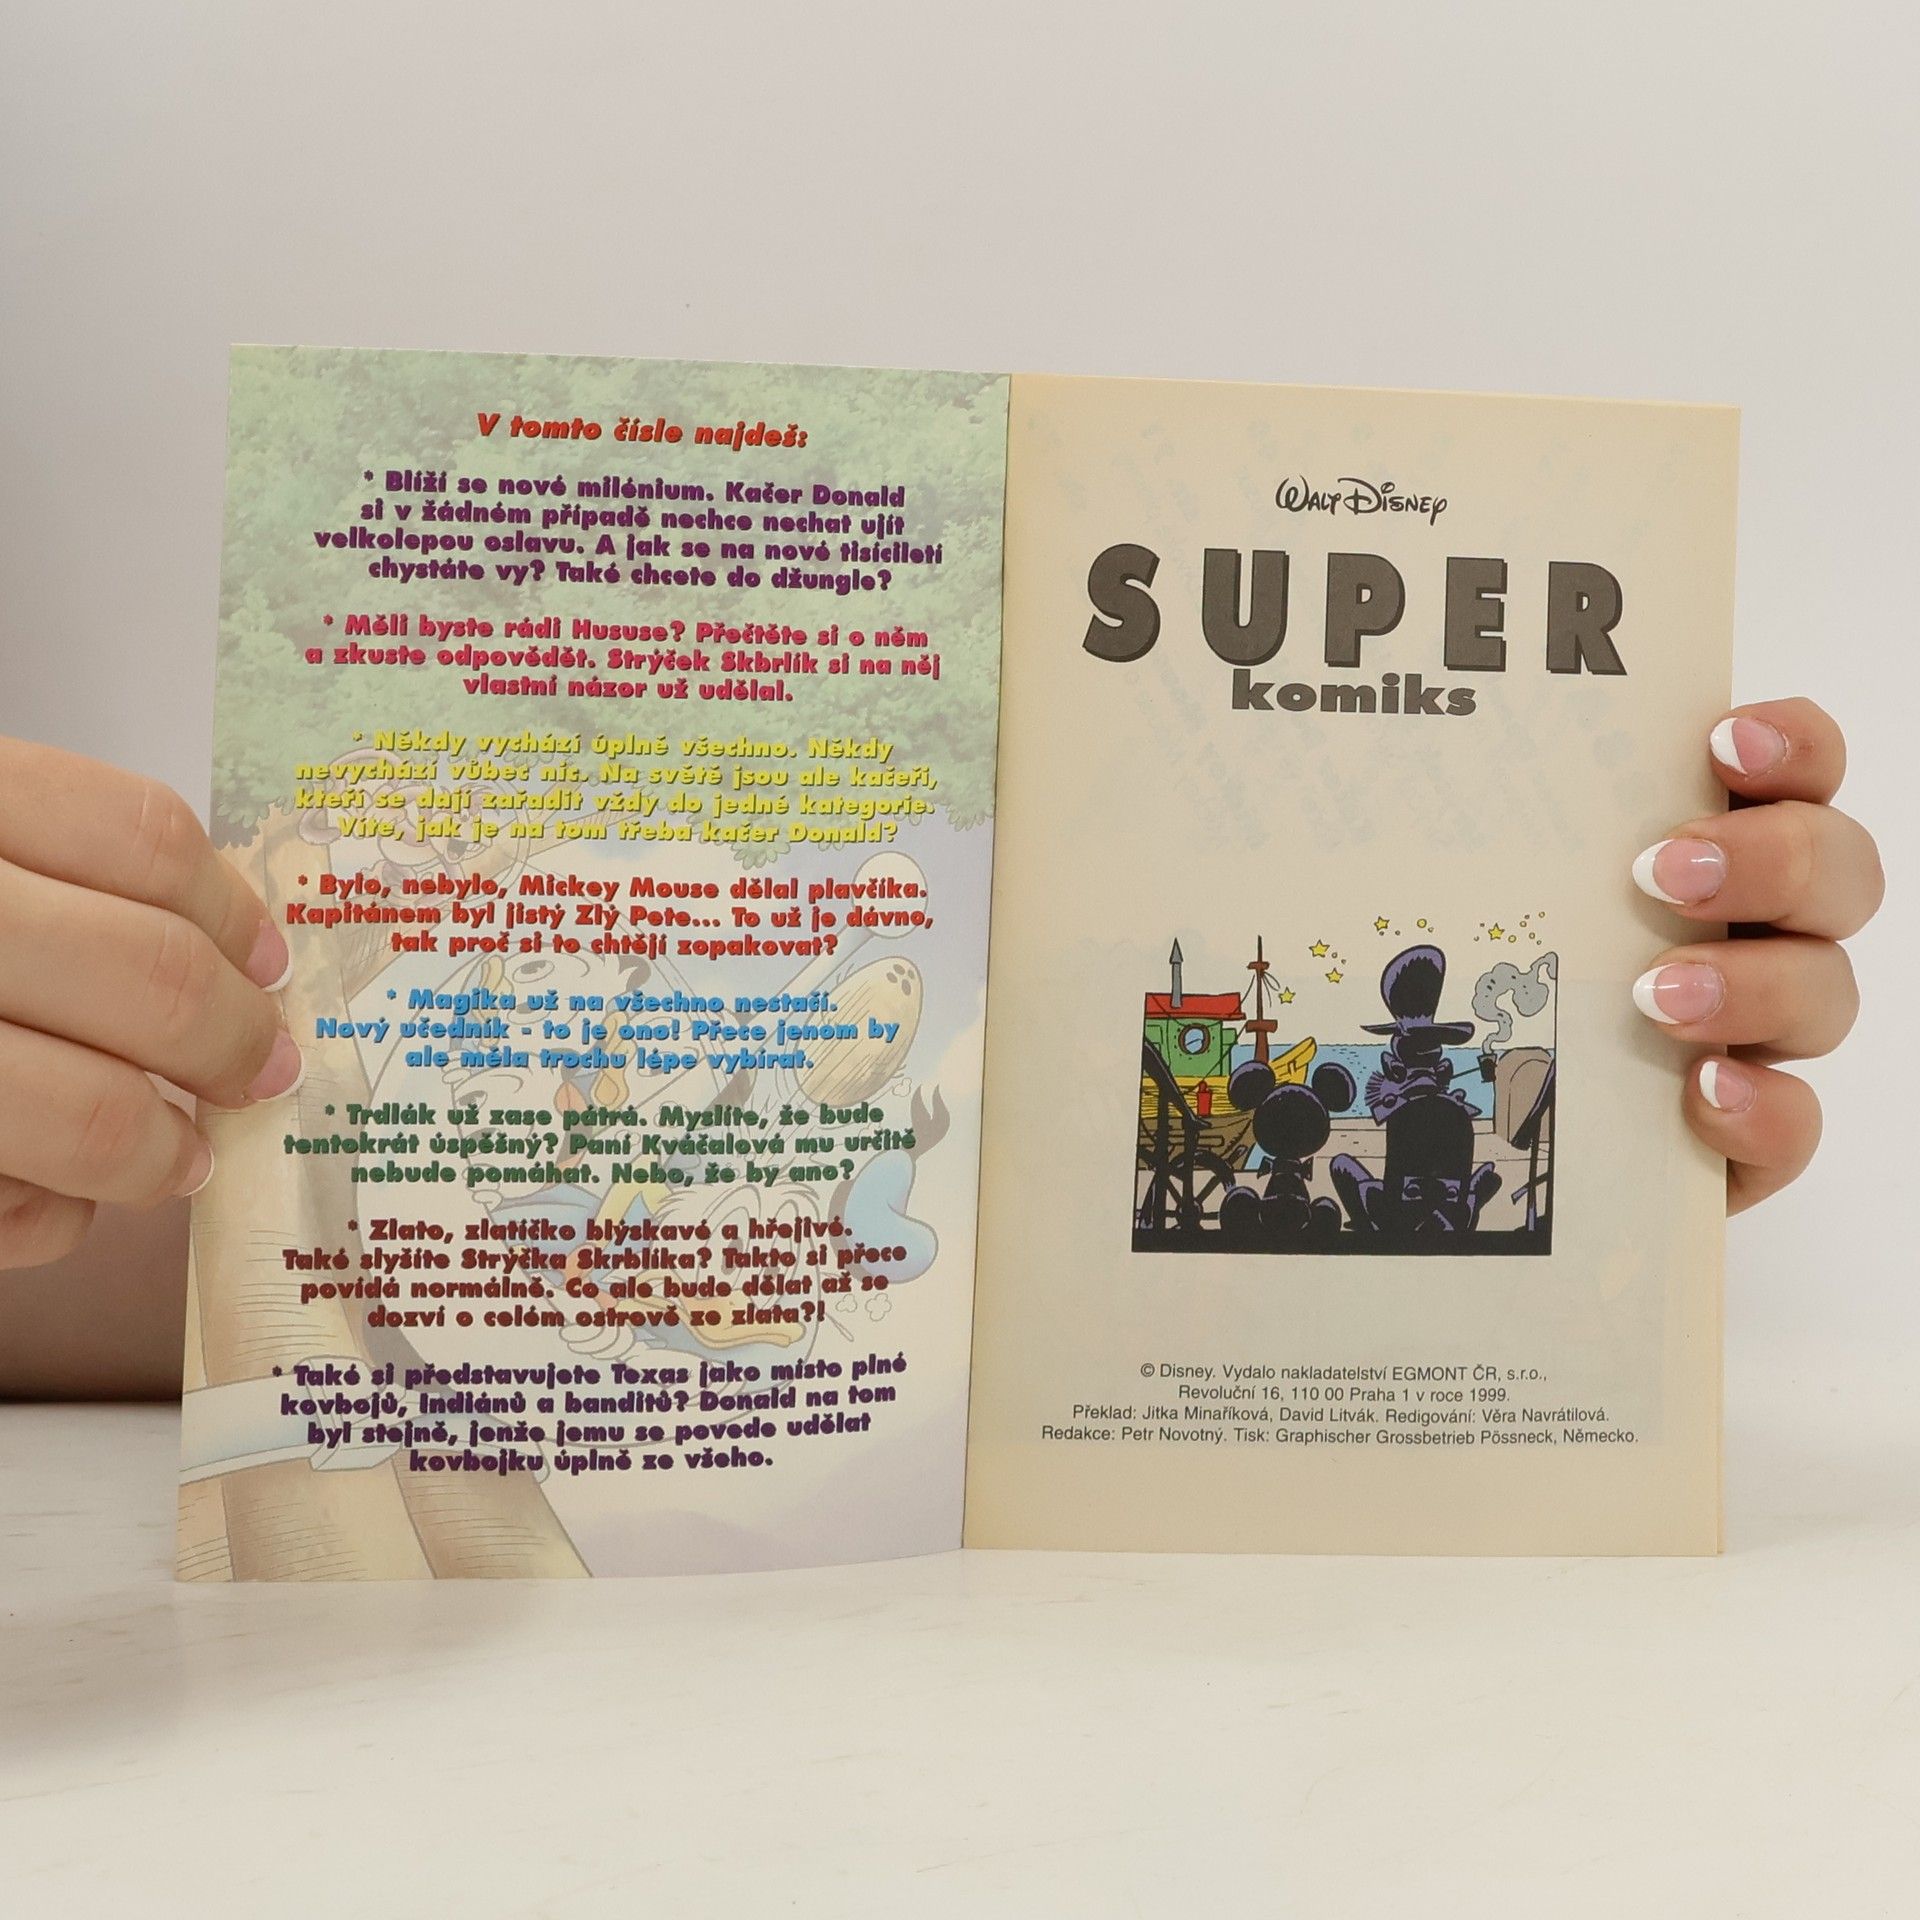 V tomto čísle najdeš:
* Blíží se nové milénium. Kačer Donald
si v žádném případě nechce nechat ujít
velkolepou oslavu. A jak se na nové tisíciletí
chystáte vy? Také chcete do džungle?
* Měli byste rádi Hususe? Přečtěte si o něm
a zkuste odpovědět. Strýček Skbrlík si na něj
vlastní názor už udělal.
* Někdy vychází úplně všechno. Někdy
nevychází vůbec nic. Na světě jsou ale kačeři,
kteří se dají zařadit vždy do jedné kategorie.
Víte, jak je na tom třeba kačer Donald?
* Bylo, nebylo, Mickey Mouse dělal plavčíka.
Kapitánem byl jistý Zlý Pete... To už je dávno,
tak proč si to chtějí zopakovat?
* Magika už na všechno nestačí.
Nový učedník - to je ono! Přece jenom by
ale měla trochu lépe vybírat.
* Trdlák už zase pátrá. Myslíte, že bude
tentokrát úspěšný? Paní Kváčalová mu určitě
nebude pomáhat. Nebo, že by ano?
* Zlato, zlatíčko blýskavé a hřejivé.
Také slyšíte Strýčka Skrblíka? Takto si přece
povídá normálně. Co ale bude dělat až se
dozví o celém ostrově ze zlata?!
* Také si představujete Texas jako místo plné
kovbojů, Indiánů a banditů? Donald na tom
byl stejně, jenže jemu se povede udělat
kovbojku úplně ze všeho.
WALT DISNEY
SUPER
komiks
© Disney. Vydalo nakladatelství EGMONT ČR, s.r.o.,
Revoluční 16, 110 00 Praha 1 v roce 1999.
Překlad: Jitka Minaříková, David Litvák. Redigování: Věra Navrátilová.
Redakce: Petr Novotný. Tisk: Graphischer Grossbetrieb Pössneck, Německo.